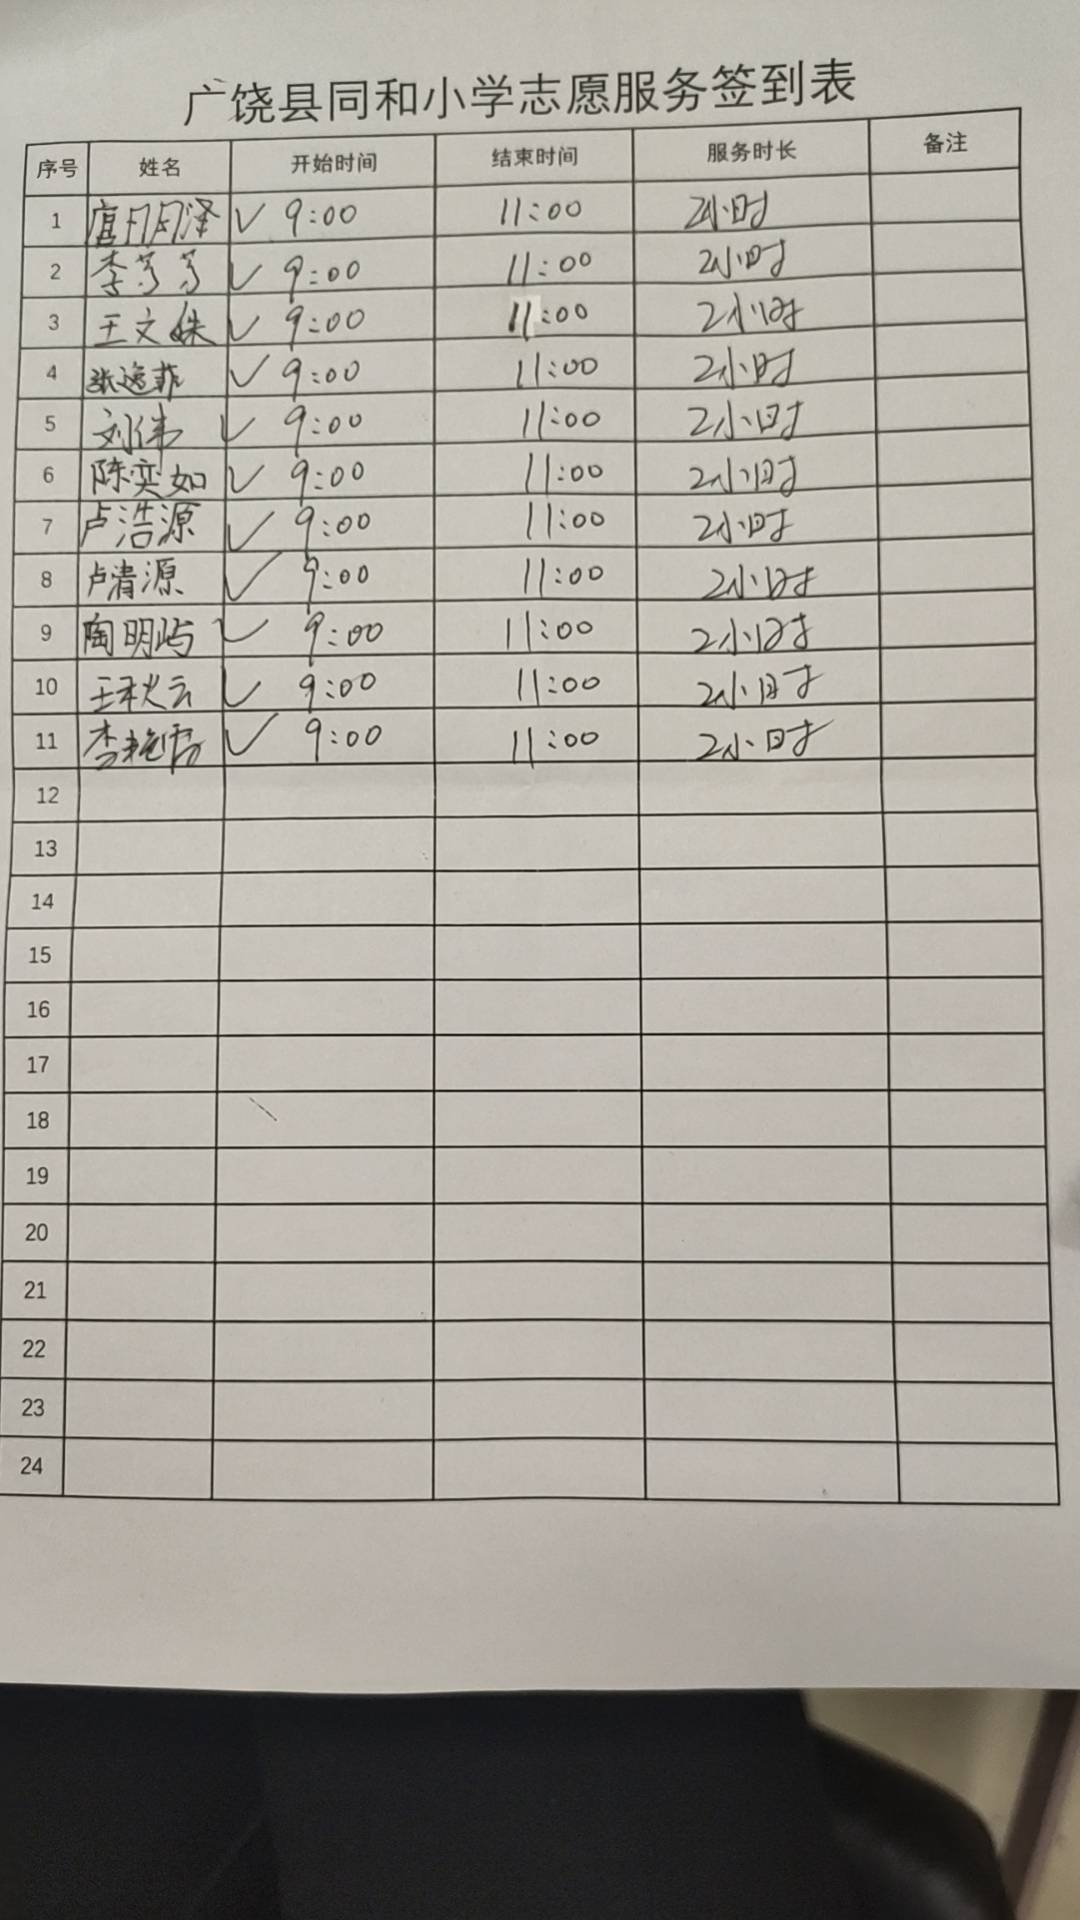 广饶县同和小学志愿服务签到表
序号 姓名 开始时间 结束时间 服务时长 备注
1 唐月月泽 ✓ 9:00 11:00 2小时
2 李芳芳 ✓ 9:00 11:00 2小时
3 王文姝 ✓ 9:00 11:00 2小时
4 张逸菲 ✓ 9:00 11:00 2小时
5 刘伟 ✓ 9:00 11:00 2小时
6 陈奕如 ✓ 9:00 11:00 2小时
7 卢浩源 ✓ 9:00 11:00 2小时
8 卢清源 ✓ 9:00 11:00 2小时
9 陶明屿 ✓ 9:00 11:00 2小时
10 王秋云 ✓ 9:00 11:00 2小时
11 李艳 ✓ 9:00 11:00 2小时
12
13
14
15
16
17
18
19
20
21
22
23
24